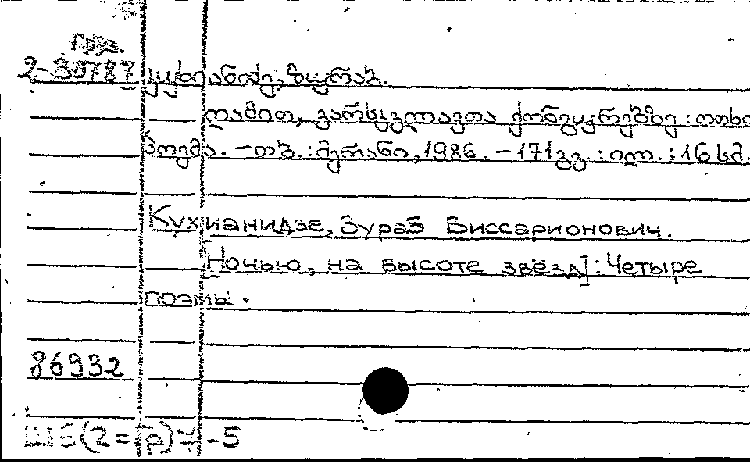 Груз.
2-30787 კუხიანიძე, ზურაბ.
ღამით, ვარსკვლავთა ქონგურებზე : ოთხი
პოემა. – თბ. : მერანი, 1986. – 171 გვ. : ილ. ; 16 სმ.
Кухианидзе, Зураб Виссарионович.
[Ночью, на высоте звёзд] : Четыре
поэмы.
86932